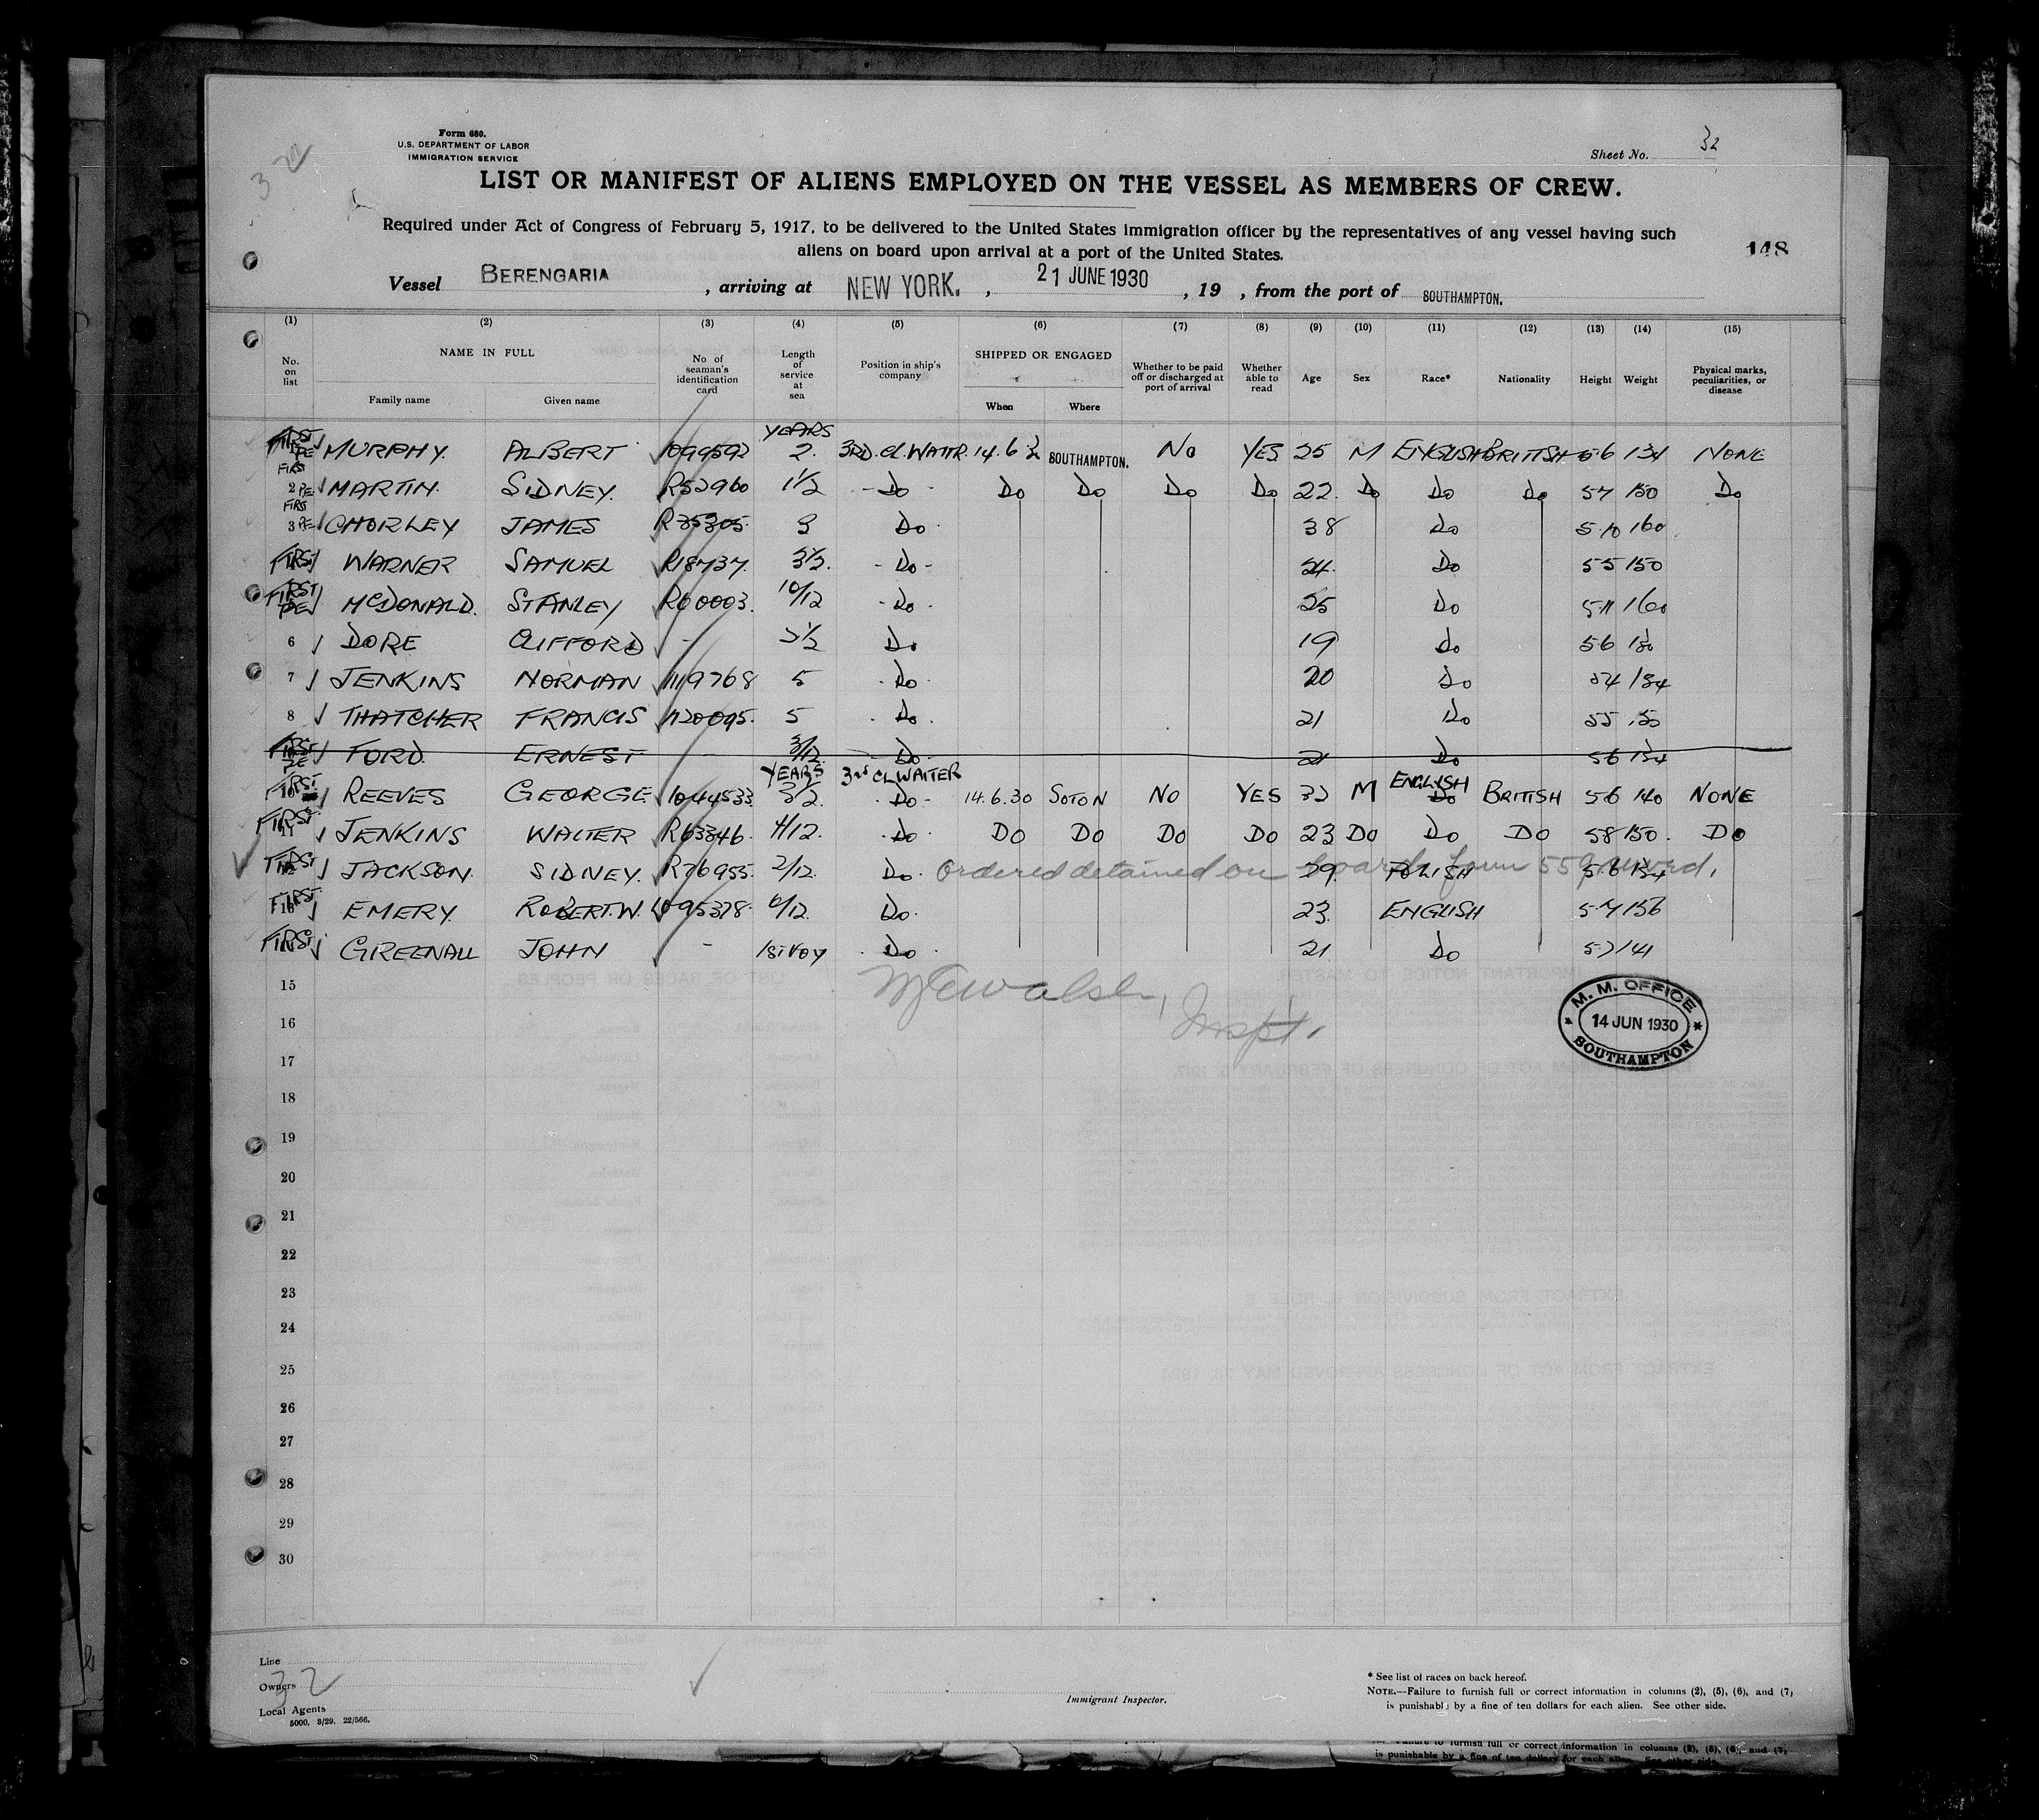 Form 680.
U.S. DEPARTMENT OF LABOR
IMMIGRATION SERVICE
Sheet No. 32
LIST OR MANIFEST OF ALIENS EMPLOYED ON THE VESSEL AS MEMBERS OF CREW.
Required under Act of Congress of February 5, 1917, to be delivered to the United States immigration officer by the representatives of any vessel having such
aliens on board upon arrival at a port of the United States.
148
Vessel BERENGARIA, arriving at NEW YORK., 21 JUNE 1930, 19 , from the port of SOUTHAMPTON.
(1) (2) (3) (4) (5) (6) (7) (8) (9) (10) (11) (12) (13) (14) (15)
No. on list NAME IN FULL Family name Given name No of seaman's identification card Length of service at sea Position in ship's company SHIPPED OR ENGAGED When Where Whether to be paid off or discharged at port of arrival Whether able to read Age Sex Race* Nationality Height Weight Physical marks, peculiarities, or disease
YEARS
FIRST MURPHY. ALBERT 1099592 2. 3RD.CL.WAITR. 14.6 SOUTHAMPTON. NO YES 25 M ENGLISH BRITISH 5-6 134 NONE
FIRST
2 PE MARTIN. SIDNEY. R52960 1½ Do Do Do Do Do 22. Do Do Do 5-7 150 Do
FIRST
3 PE CHORLEY JAMES 3 Do 38 Do 5-10 160
FIRST WARNER SAMUEL R18737. 3½. Do 24. Do 5-5 150
FIRST McDONALD. STANLEY R60003. 10/12 Do 25 Do 5-11 160
6 DORE CLIFFORD - Do 19 Do 5-6
7 JENKINS NORMAN 1119768 5 Do 20 Do 5-4 134
8 THATCHER FRANCIS 1120095. 5 Do. 21 Do 5-5
FIRST FORD. ERNEST 3/12. Do 21 Do 5-6 134
YEARS 3rd CL WAITER ENGLISH
FIRST REEVES GEORGE 1044533 3½. Do 14.6.30 SOTON NO YES 32 M Do BRITISH 5-6 140 NONE
FIRST JENKINS WALTER R63346. 4/12. Do DO DO DO DO 23 DO Do DO 5-8 150. DO
FIRST JACKSON. SIDNEY. R76955. 2/12. Do. Ordered detained on board form 559 served. 29. POLISH 5-6 134
FIRST EMERY. ROBERT.W. 1095378. 6/12. Do. 23. ENGLISH 5-7 156
FIRST GREENALL JOHN - 1ST VOY Do 21 Do 5-7 141
15
Walsh, Inspt.
16
M. M. OFFICE
14 JUN 1930
SOUTHAMPTON
17
18
19
20
21
22
23
24
25
26
27
28
29
30
Line
Owners
32
Local Agents
5000. 8/29. 22/566.
Immigrant Inspector.
* See list of races on back hereof.
NOTE.—Failure to furnish full or correct information in columns (2), (5), (6), and (7)
is punishable by a fine of ten dollars for each alien. See other side.